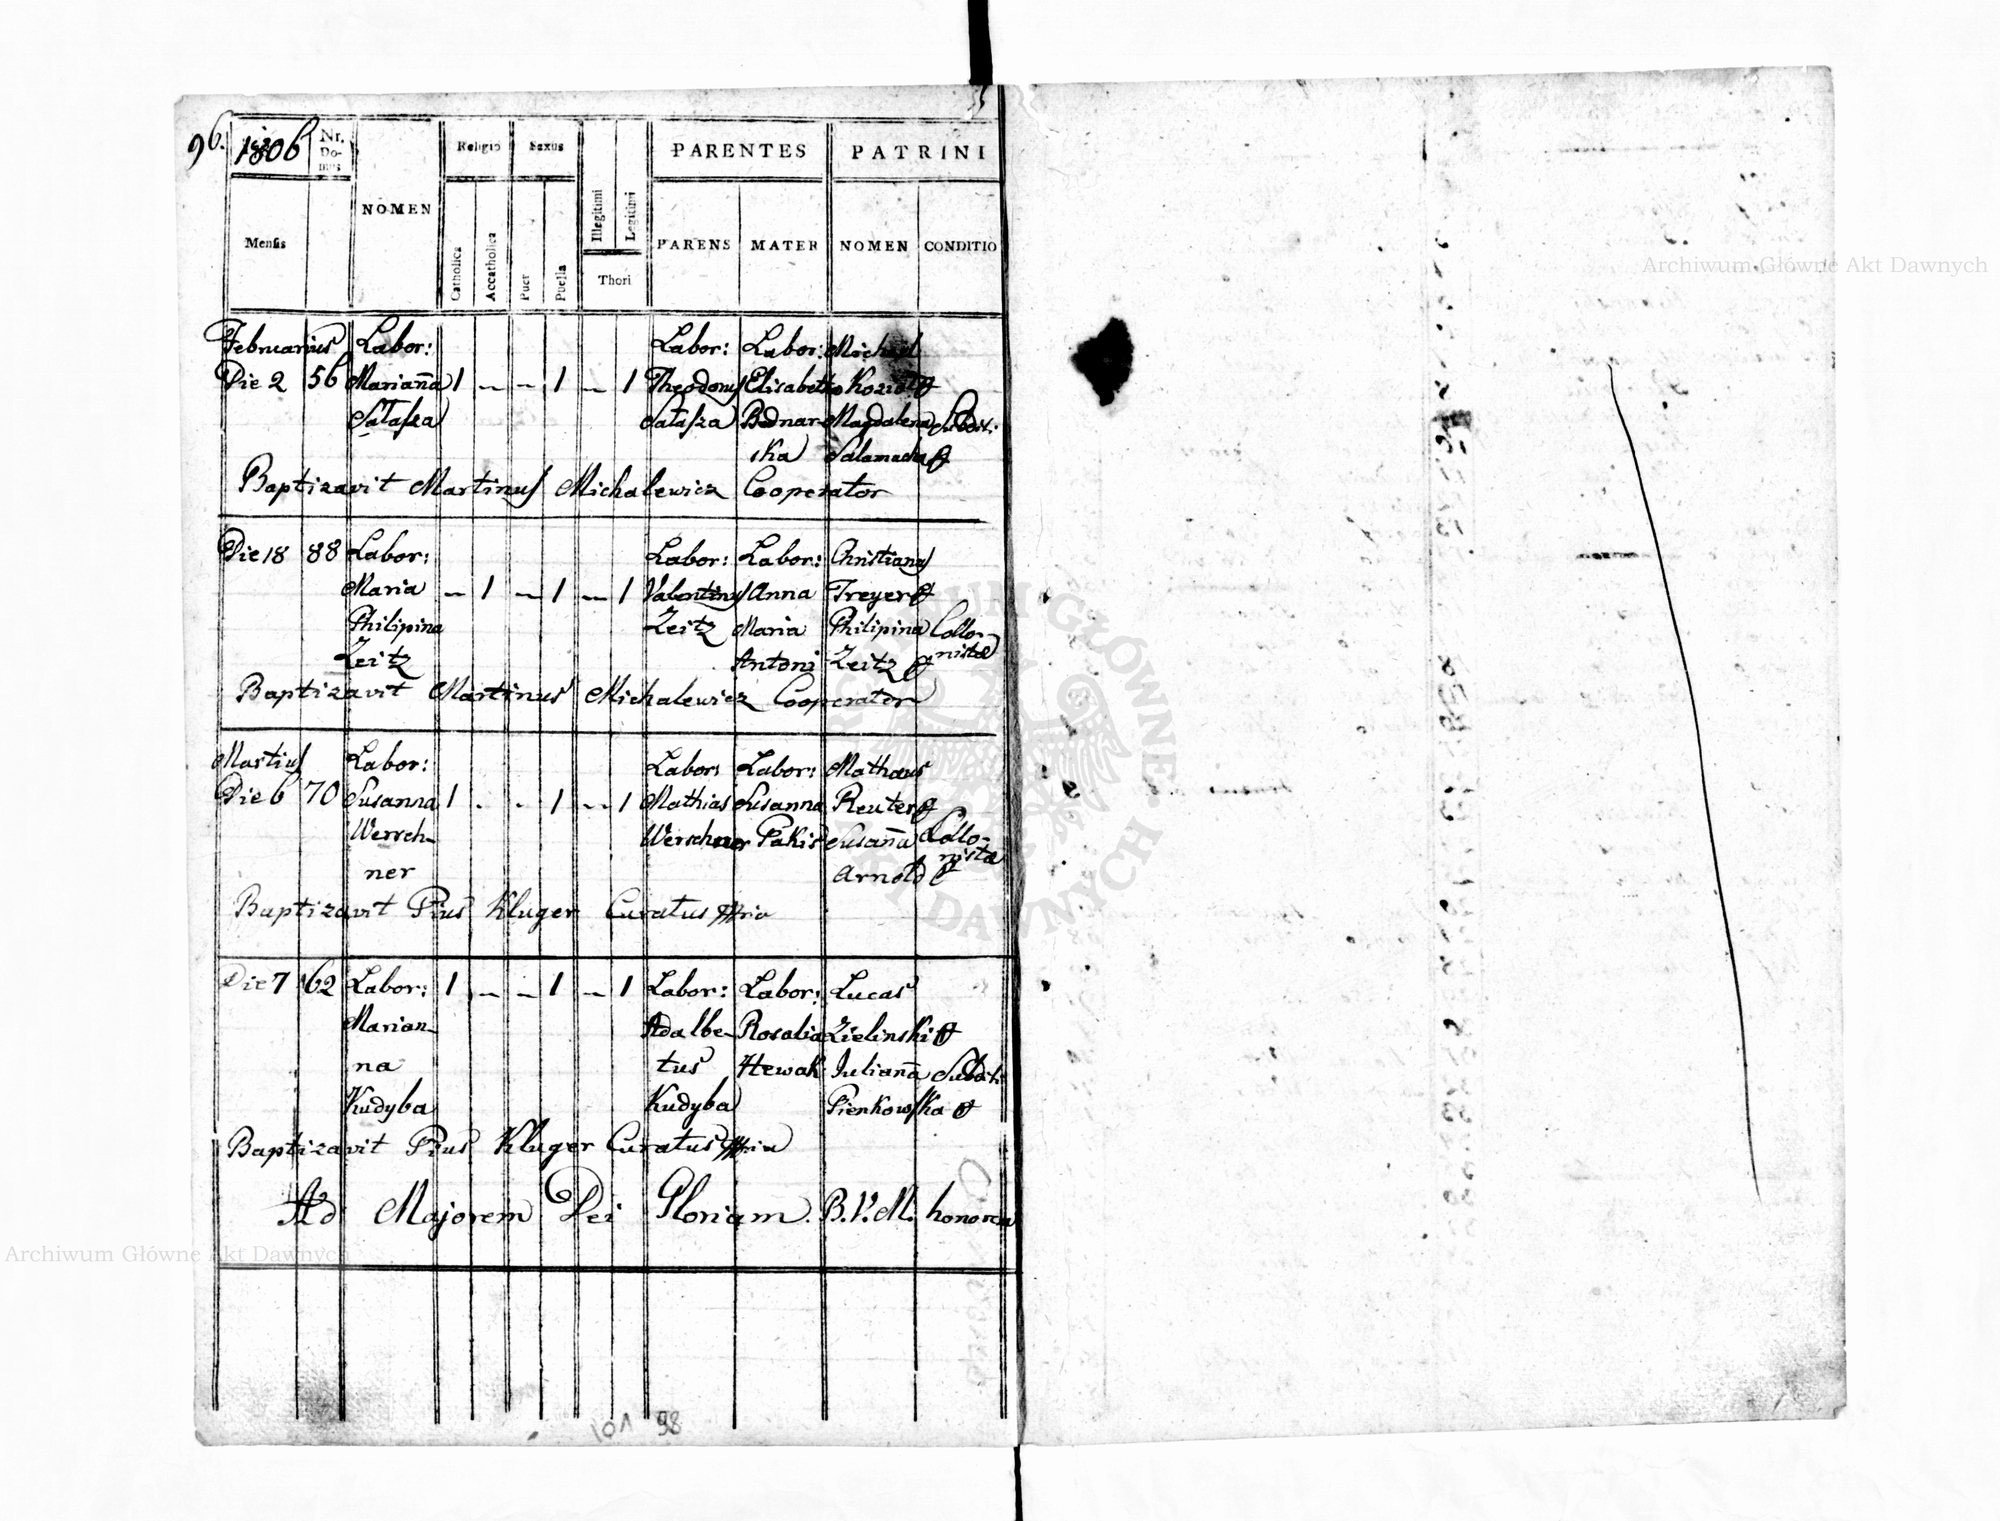 96.
1806
Nr. Domus
NOMEN
Religio
Sexus
PARENTES
PATRINI
Mensis
Catholica
Accatholica
Puer
Puella
Illegitimi
Legitimi
Thori
PARENS
MATER
NOMEN
CONDITIO
Februarius Labor: Labor: Labor: Michael
Die 2 56 Marian̄a 1 – – 1 – 1 Theodorus Elisabetha Kozioł
Sałasza Sałasza Bednar- Magdalena Subditi
ska Salamacha
Baptizavit Martinus Michalewicz Cooperator
Die 18 88 Labor: Labor: Labor: Christianus
Maria – 1 – 1 – 1 Valentinus Anna Freyer
Philipina Zeitz Maria Philipina Collo-
Zeitz Antoni Zeitz nistæ
Baptizavit Martinus Michalewicz Cooperator
Martius Labor: Labor: Labor: Mathæus
Die 6 70 Susanna 1 - - 1 - 1 Mathias Susanna Reuter
Wersch- Werschner Pakis Susan̄a Collo-
ner Arnold nistæ
Baptizavit Pius Kluger Curatus
Die 7 62 Labor: 1 – – 1 – 1 Labor: Labor: Lucas
Marian- Adalbe- Rosalia Zielinski
na tus Hewak Julian̄a Subditi
Kudyba Kudyba Pienkowska
Baptizavit Pius Kluger Curatus
Ad Majorem Dei Gloriam. B.V.M. honorem
101 98
Archiwum Główne Akt Dawnych
Archiwum Główne Akt Dawnych
ARCHIWUM GŁÓWNE AKT DAWNYCH